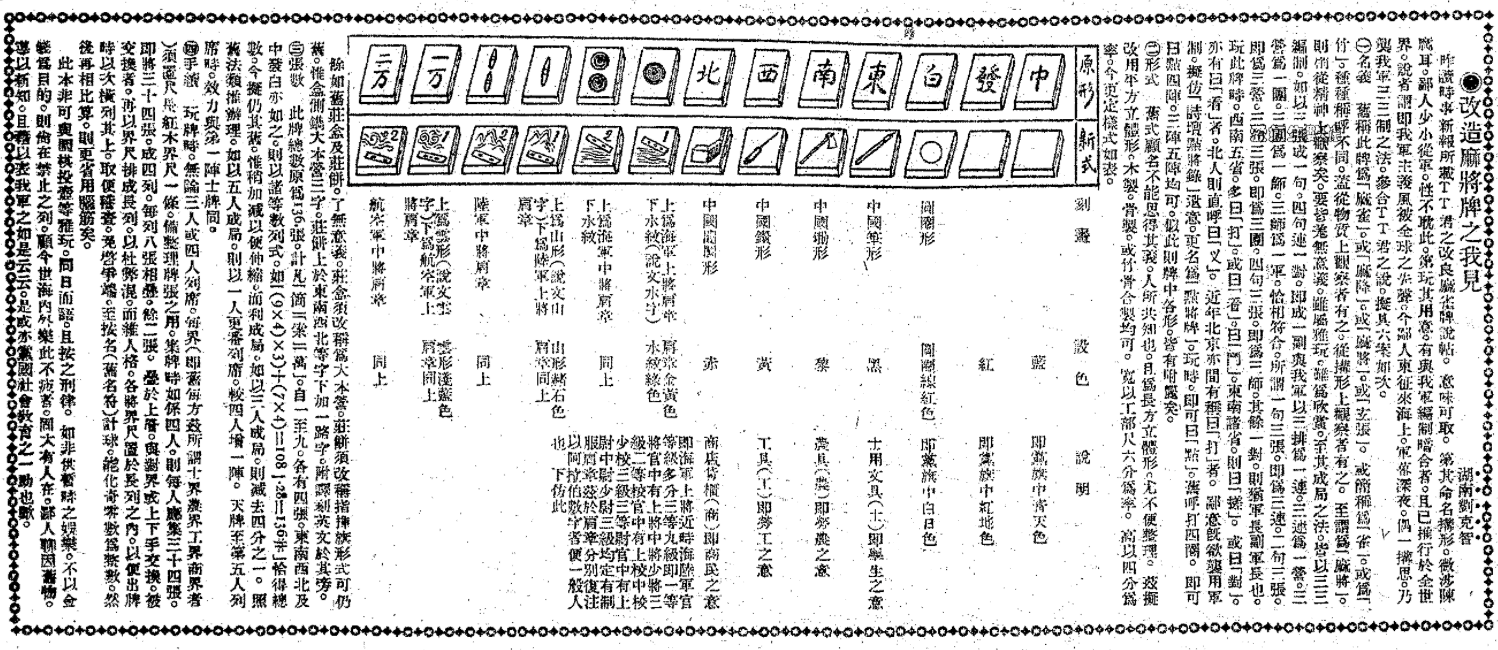 ◉改造麻將牌之我見
湖南劉克智
昨讀時事新報所載TT君之改良麻雀牌說帖。意味可取。第其命名構形。微涉陳
腐耳。鄙人少小從軍。性不耽此。第玩其用意。有與我軍編制暗合者。且已推行於全世
界。說者謂即我軍主義風被全球之先聲。今鄙人東征來海上。軍舊深夜。偶一構思。乃
襲我軍三三制之法。參合TT君之說。擬具六案如次。
㊀名義　舊稱此牌爲「麻雀」。或「麻降」。或「麻將」。或「玄張」。或簡稱爲「雀」。或爲「
竹」。種種稱呼不同。蓋從物質上觀察者有之。從構形上觀察者有之。至謂爲「麻將」。
則稍從精神上觀察矣。要皆毫無意義。雖屬雅玩。難爲欣賞。至其成局之法。皆以三三
編制。如以三張成一句。四句連一對。即成一副。與我軍以三排爲一連。三連爲一營。三
營爲一團。三團爲一師。三師爲一軍。恰相符合。所謂一句三張。即爲三連。二句三張。
即爲三營。三句三張。即爲三團。四句三張。即爲三師。其餘一對。則猶軍長副軍長也。
玩此牌時。西南五省。多曰「打」。或曰「看」。曰「鬥」。東南諸省。則曰「搓」。或曰「對」。
亦有曰「看」者。北人則直呼曰「叉」。近年北京亦間有種曰「打」者。鄙意旣欲襲用軍
制。擬仿「詩壇點將錄」遺意。更名爲「點將牌」。玩時。即可曰「點」。舊呼打四圈。即可
曰點四陣。三陣五陣均可。似此則牌中各形。皆有附麗矣。
㊁形式　舊式顧名不能思得其義。人所共知也。且爲長方立體形。尤不便整理。茲擬
改用平方立體形。木製。骨製。或竹骨合製均可。寬以工部尺六分爲率。高以四分爲
率。今更定樣式如表。
原形
新式
刻畫
設色
說明
中
藍
即黨旗中青天色
發
紅
即黨旗中紅地色
白
圓圈形
圓圈線紅色
即黨旗中白日色
東
中國筆形
黑
士用文具(士)即學生之意
南
中國鋤形
黎
農具(農)即勞農之意
西
中國鐵形
黃
工具(工)即勞工之意
北
中國櫃形
赤
商店貨櫃(商)即商民之意
上爲海軍上將肩章
下水紋(說文水字)
肩章金黃色
水紋綠色
即海軍上將近時海陸軍官
等級多分三等九級即一等
將官中有上將中將少將三
級二等校官中有上校中校
少校三級三等尉官中有上
尉中尉少尉三級均定有制
服肩章茲於肩章分別復注
以阿拉伯數字者便一般人
也。下仿此
上爲海軍中將肩章
下水紋
同上
上爲山形(說文山
字)下爲陸軍上將
肩章
山形赭石色
肩章同上
陸軍中將肩章
同上
一万
上爲雲形(說文雲
字)下爲航空軍上
將肩章
雲形淺藍色
肩章同上
二万
航空軍中將肩章
同上
餘如舊莊盒及莊餅。了無意義。莊盒須改稱爲大本營。莊餅須改稱指揮旗形式可仍
舊。惟盒側鐫大本營三字。莊餅上於東南西北等字下加一路字。附譯刻英文於其旁。
㊂張數　此牌總數原爲136張。計凡一筒二索三萬。自一至九。各有四張。東南西北及
中發白亦如之。則以諸等數列式。如「(9×4)×3)+(7×4)=108+28=136.*」恰得總
數。今擬仍其舊。惟稍加減以便伸縮。而利成局。如以三人成局。則減去四分之一。照
舊法類推辦理。如以五人成局。則以一人更番列席。較四人增一陣。天牌至第五人列
席時。效力與第一陣士牌同。
㊃手續　玩牌時。無論三人或四人列席。每界(即舊每方茲所謂士界農界工界商界者
)須置尺長紅木界尺一條。備整理牌張之用。集牌時如係四人。則每人應集三十四張。
即將三十四張。成四列。每列八張相疊。餘二張。疊於上層。與對界或上下手交換。被
交換者。再以界尺排成長列。以杜弊混。而維人格。各將界尺置於長列之內。以便出牌
時以次橫列其上。取便稽查。免啓爭端。至按名(舊名符)計球。能化奇零數爲整數。然
後再相比算。則更省用腦筋矣。
此本非可與圍棋投壺等雅玩。同日而語。且按之刑律。如非供暫時之娛樂。不以金
錢爲目的。則倘在禁止之列。顧今世海內外樂此不疲者。固大有人在。鄙人聊因舊物。
導以新知。且藉以表我軍之如是云云。是或亦黨國社會教育之一助也歟。